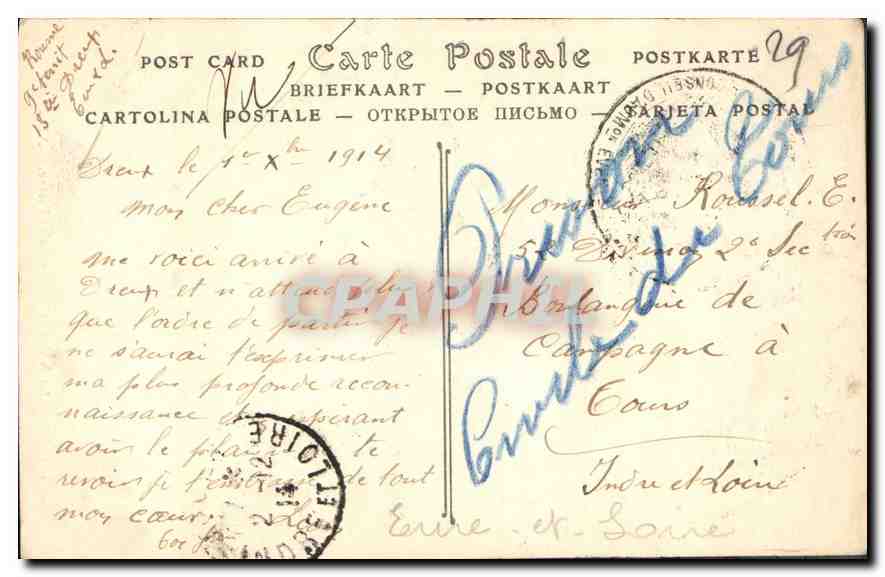 29
POST CARD Carte Postale POSTKARTE
BRIEFKAART – POSTKAART
CARTOLINA POSTALE – ОТКРЫТОЕ ПИСЬМО – TARJETA POSTAL
Dreux le 1er Xbre 1914
mon cher Eugène
me voici arrivé à
Dreux et n'attend plus
que l'ordre de partir je
ne saurai t'exprimer
ma plus profonde recon
naissance et espérant
avoir le plaisir de te
revoir je t'embrasse de tout
mon cœur
Monsieur Roussel. E.
2e Section
Boulangerie de
Campagne à
Tours
Indre et Loire
Eure-et-Loire
Tours
CPAPHIL
2-12
14